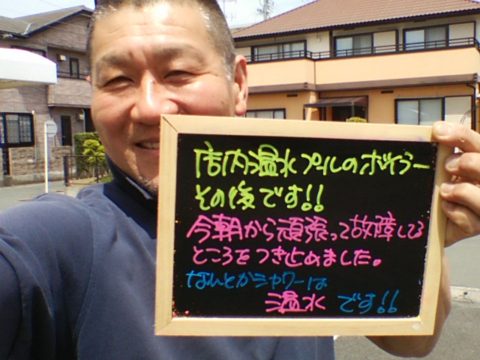 店内温水プールのボイラー
その後です!!
今朝から頑張って故障してる
ところをつき止めました。
なんとかシャワーは
温水です!!